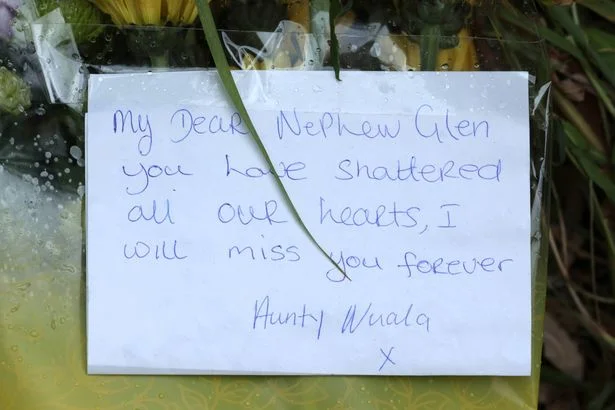 My Dear Nephew Glen
you have shattered
all our hearts, I
will miss you forever
Aunty Nuala
x